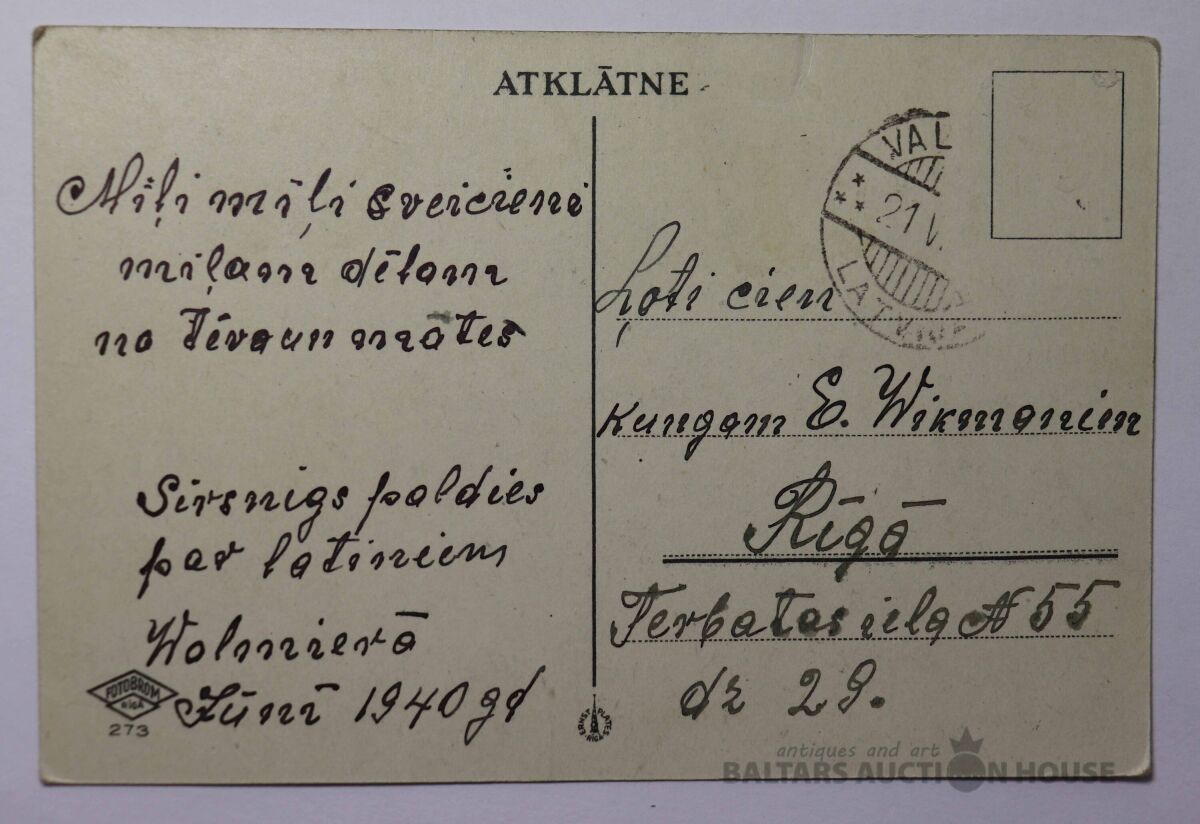 ATKLĀTNE
Mīļi mīļi sveicieni
mīļam dēlam
no Tēva un mātes
Sirsnigs paldies
par latiņiem
Wolmierā
Jūnī 1940 gd
FOTOBROM
RIGA
273
ERNST PLATES RIGA
VAL
21 V.
LATVIJA
Ļoti cien
Kungam E. Wikmaniem
Rīgā
Terbatas iela № 55
dz 29.
antiques and art
BALTARS AUCTION HOUSE